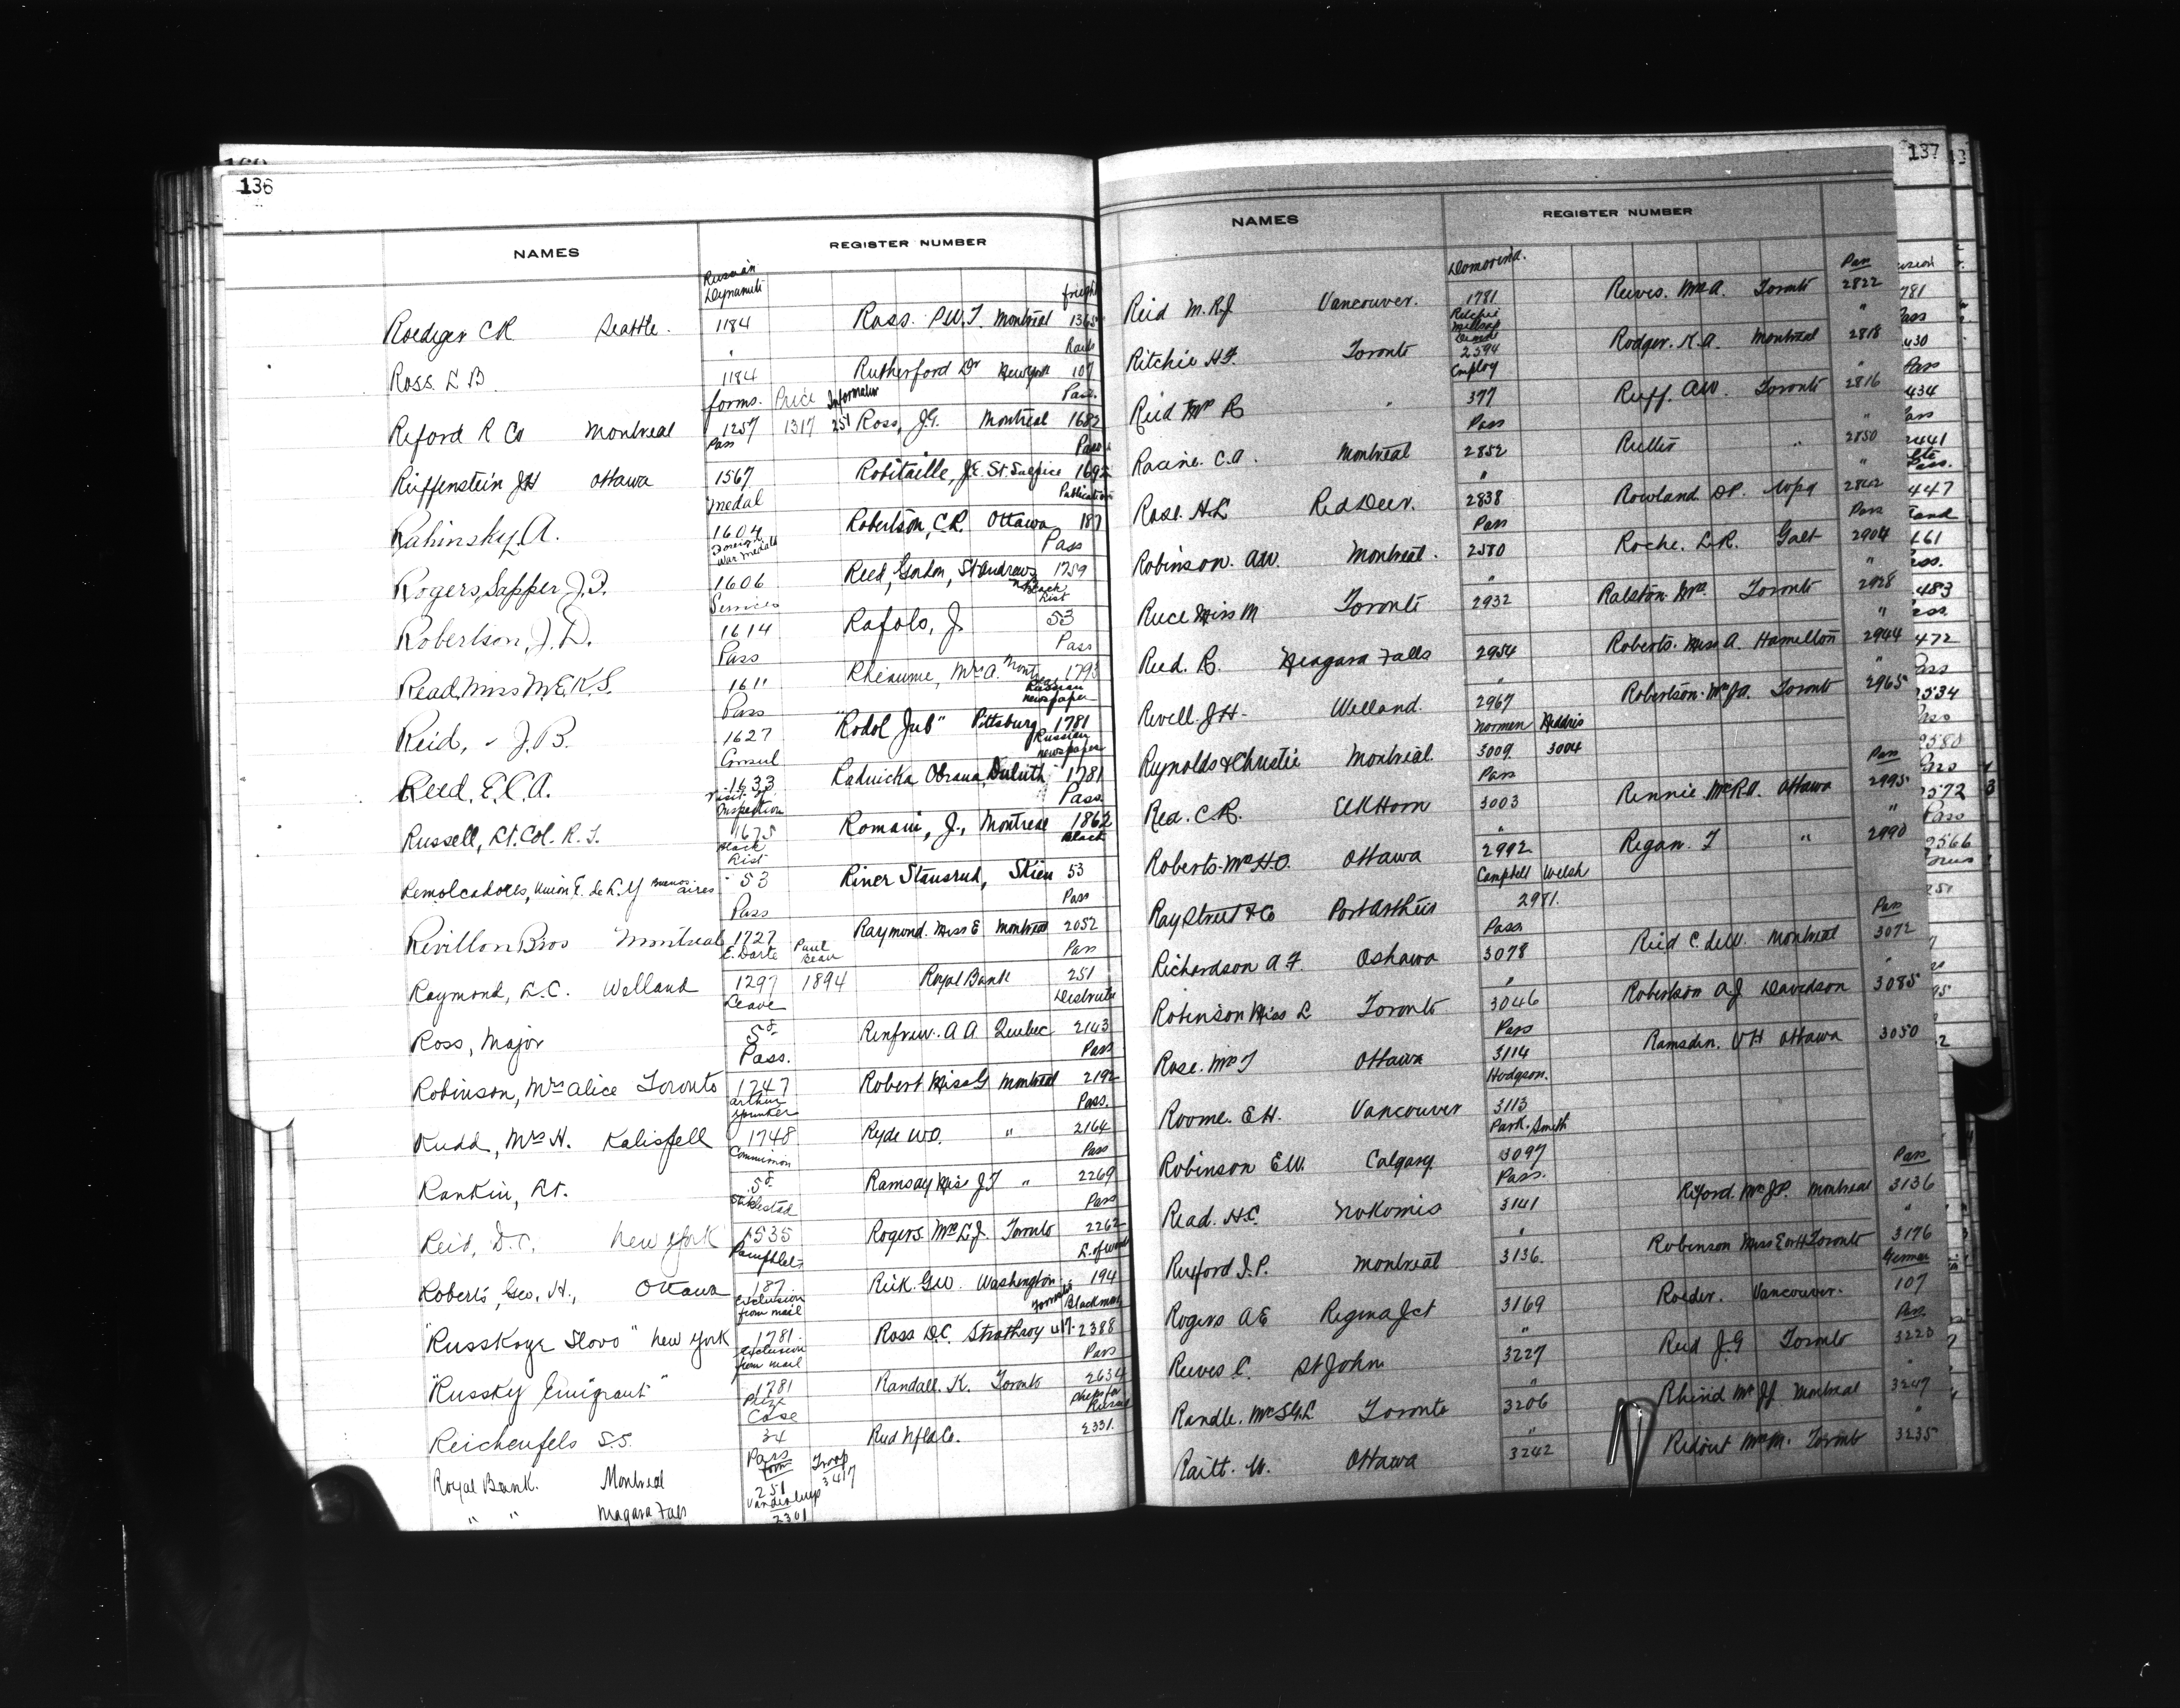 136
NAMES REGISTER NUMBER
Russian
Dynamite freight
Roediger C R Seattle. 1184 Ross. P.W.T. Montreal 1365
" Rails
Ross. L B 1184 Rutherford Dr New York 107
forms. Price Information Pass.
Reford R Co Montreal 1257 1317 251 Ross, J.G. Montreal 1682
Pass Pass
Reiffenstein J H Ottawa 1567 Robitaille, J.E. St. Sulpice 1692
medal Publication
Rabinsky, A. 1604 Robertson, C.R. Ottawa 187
Foreign
war medals Pass
Rogers, Sapper J.F. 1606 Reed, Gordon, St Andrews 1759
Services Black
List
Robertson, J.D. 1614 Rafols, J. 53
Pass Pass
Read, Miss M.E.K.S. 1611 Rheaume, Mrs A. Montreal 1793
Pass Russian
newspaper
Reid, J.B. 1627 "Rodol Jub" Pittsburg 1781
Consul Russian
newspaper
Reed, E.C.A. 1633 Radnicka Obrana, Duluth 1781
Visit of
Inspection Pass
Russell, Lt. Col. R.F. 1675 Romain, J., Montreal 1862
Black
List Black
Remolcadores, Union E. de L. y Buenos Aires 53 Riner Stensrud, Skien 53
Pass Pass
Revillon Bros Montreal 1727 Raymond. Miss E Montreal 2052
E. Darte Paul
Beau Pass
Raymond, L.C. Welland 1297 1894 Royal Bank 251
Leave Destruite
Ross, Major 5F Renfrew. A A Quebec 2143
Pass. Pass
Robinson, Mrs Alice Toronto 1747 Robert Miss G Montreal 2192
Arthur
Yunker Pass.
Rudd, Mrs H. Kalispell 1748 Ryde W.O. " 2164
Commission Pass
Rankin, Lt. 5F Ramsay Miss J T " 2269
Pass
Reid, D.C. New York 1535 Rogers. Mrs L.J. Toronto 2262
Pamphlets L. of Woods
Roberts, Geo. H., Ottawa 187 Reik. Geo. Washington 194
Exclusion
from mail Blackmore
"Russkoye Slovo" New York 1781. Ross D.C. Strathroy 417. 2388
Exclusion
from mail Pass
"Russky Emigrant" 1781 Randall. K. Toronto 2634
Prize
Case Ships for
Russia
Reichenfels S.S. 34 Reid Nfld Co. 2331.
Pass
form Troop
Royal Bank. Montreal 251 3417
Vanderlup
" " Niagara Falls 2301
137
NAMES REGISTER NUMBER
Pass
Reid M. R.J Vancouver. 1781 Reeves. Mrs A. Toronto 2822
Ritchie
"
Ritchie H.F. Toronto 2594 Rodger. K.A. Montreal 2818
Employ "
Reid Mr R " 377 Ruff. A.W. Toronto 2816
Pass "
Racine. C.A. Montreal 2852 " 2850
" "
Rose. H.L Red Deer. 2838 Rowland. D.P. Wpg 2842
Pass Pass
Robinson. A.W. Montreal. 2580 Roche. L.R. Galt 2904
" "
Ruce Miss M Toronto 2932 Ralston. Mrs. Toronto 2928
" "
Reed. R. Niagara Falls 2954 Roberts. Miss A. Hamilton 2944
" "
Revell. J.H. Welland. 2967 Robertson. Mrs J.A. Toronto 2965
Normen Heddris
Reynolds & Christie Montreal. 3009. 3004
Pass Pass
Rea. C.R. Elkhorn 3003 Rennie. Mrs R.A. Ottawa 2995
" "
Roberts. Mrs H.O. Ottawa 2992 Regan. T " 2990
Campbell Welsh
Ray Street & Co Port Arthur 2981.
Pass Pass
Richardson A F. Oshawa 3078 Reid C. deW. Montreal 3072
" "
Robinson Miss L Toronto 3046 Robertson A J Davidson 3085
Pass
Rose. Mrs T Ottawa 3114 Ramsden. V H Ottawa 3050
Hodgson.
Roome. E.H. Vancouver 3113
Park. Smith
Robinson E.W. Calgary 3097
Pass. Pass
Read. H.C. Nokomis 3141 Reford. Mrs J.P. Montreal 3136
" "
Rexford I.P. Montreal 3136. Robinson Miss E W H Toronto 3176
German
Rogers A E Regina Jct 3169 Roeder. Vancouver. 107
" Pass
Reeves C. St John. 3227 Reid J.G Toronto 3223
" "
Randle. Mrs S G.L Toronto 3206 Rhind Mr J.J. Montreal 3247
" "
Raitt. W. Ottawa 3242 Ridout Mrs M. Toronto 3235